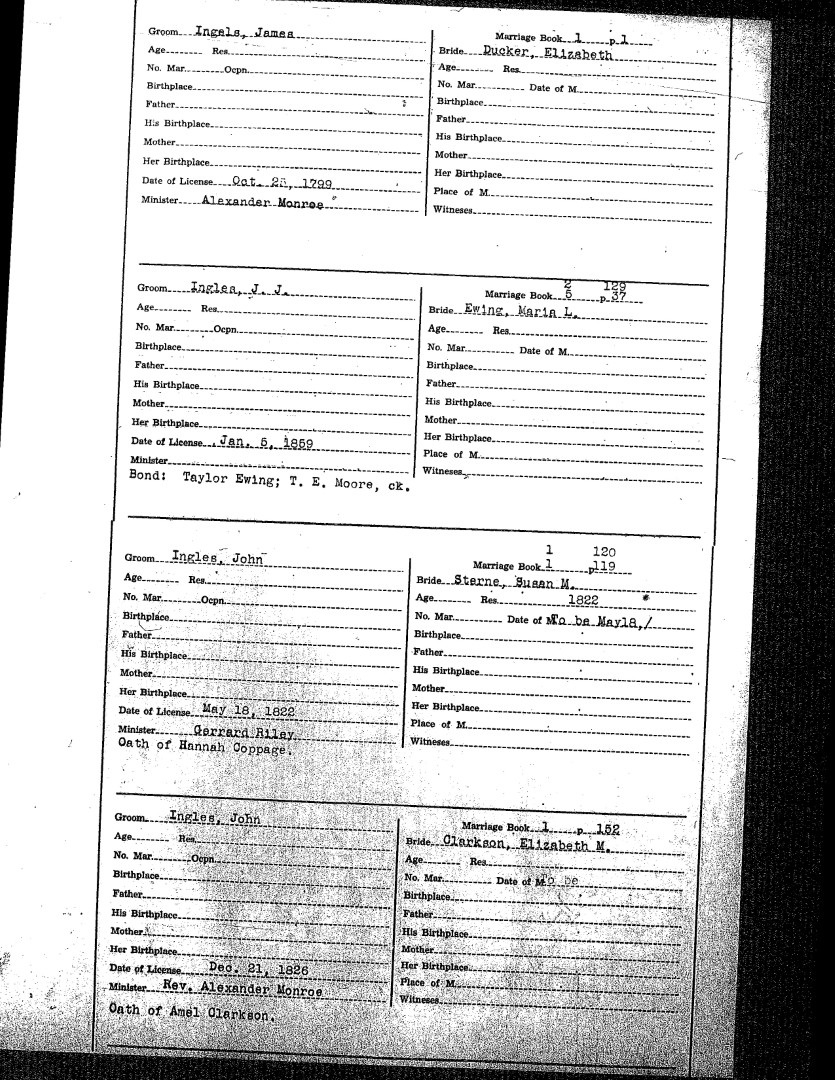 Groom Ingels, James
Age Res.
No. Mar. Ocpn.
Birthplace
Father
His Birthplace
Mother
Her Birthplace
Date of License Oct. 25, 1799
Minister Alexander Monroe
Marriage Book 1 p 1
Bride Ducker, Elizabeth
Age Res.
No. Mar. Date of M.
Birthplace
Father
His Birthplace
Mother
Her Birthplace
Place of M.
Witneses
Groom Ingles, J. J.
Age Res.
No. Mar. Ocpn.
Birthplace
Father
His Birthplace
Mother
Her Birthplace
Date of License Jan. 5, 1859
Minister
Bond: Taylor Ewing; T. E. Moore, ck.
2 129
Marriage Book 5 p 37
Bride Ewing, Maria L.
Age Res.
No. Mar. Date of M.
Birthplace
Father
His Birthplace
Mother
Her Birthplace
Place of M.
Witneses
Groom Ingles, John
Age Res.
No. Mar. Ocpn.
Birthplace
Father
His Birthplace
Mother
Her Birthplace
Date of License May 18, 1822
Minister Gerrard Riley
Oath of Hannah Coppage.
1 120
Marriage Book 1 p119
Bride Sterne, Susan M.
Age Res. 1822
No. Mar. Date of M To be May18,/
Birthplace
Father
His Birthplace
Mother
Her Birthplace
Place of M.
Witneses
Groom Ingles, John
Age Res.
No. Mar. Ocpn.
Birthplace
Father
His Birthplace
Mother
Her Birthplace
Date of License Dec. 21, 1826
Minister Rev. Alexander Monroe
Oath of Amel Clarkson.
Marriage Book 1 p 152
Bride Clarkson, Elizabeth M.
Age Res.
No. Mar. Date of M To be
Birthplace
Father
His Birthplace
Mother
Her Birthplace
Place of M.
Witneses